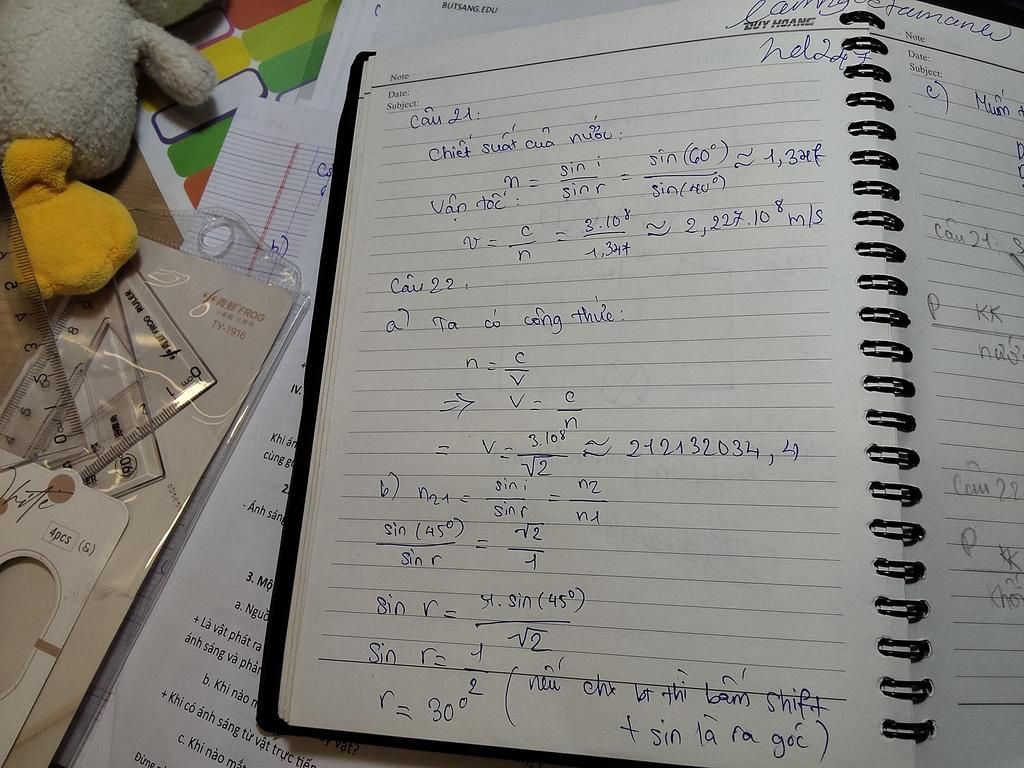 BUTSANG.EDU
DUY HOANG
nd227
Note
Date:
Subject:
Câu 21:
Chiết suất của nước:
n = sin i / sin r = sin(60°) / sin(40°) ≈ 1,347
Vận tốc:
v = c / n = 3.10⁸ / 1,347 ≈ 2,227.10⁸ m/s
Câu 22:
a) Ta có công thức:
n = c / v
=> v = c / n
= v = 3.10⁸ / √2 ≈ 212132034,4
b) n21 = sin i / sin r = n2 / n1
sin(45°) / sin r = √2 / 1
sin r = 1.sin(45°) / √2
sin r = 1 / 2
r = 30° (nếu chx bt thì bấm shift
+ sin là ra góc)
Note
Date:
Subject:
c) Muốn
Câu 21:
P KK
nước
Câu 22
P
FROG
TY-1916
FROG RULER
4pcs (&)
IV.
Khi án
cùng gó
2.
- Ánh sáng
3. Mộ
a. Nguồ
+ Là vật phát ra
ánh sáng và phản
b. Khi nào
+ Khi có ánh sáng từ vật trực tiếp
vật?
c. Khi nào mắt